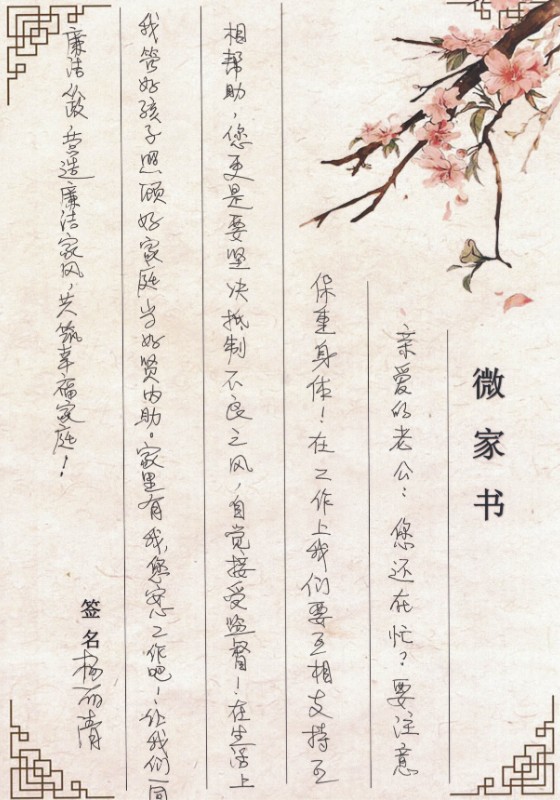 微家书
亲爱的老公：您还在忙？要注意
保重身体！在工作上我们要互相支持互
相帮助，您更是要坚决抵制不良之风，自觉接受监督！在生活上
我管好孩子照顾好家庭当好贤内助。家里有我，您安心工作吧！让我们一同
廉洁从政营造廉洁家风，共筑幸福家庭！
签名 杨丽清